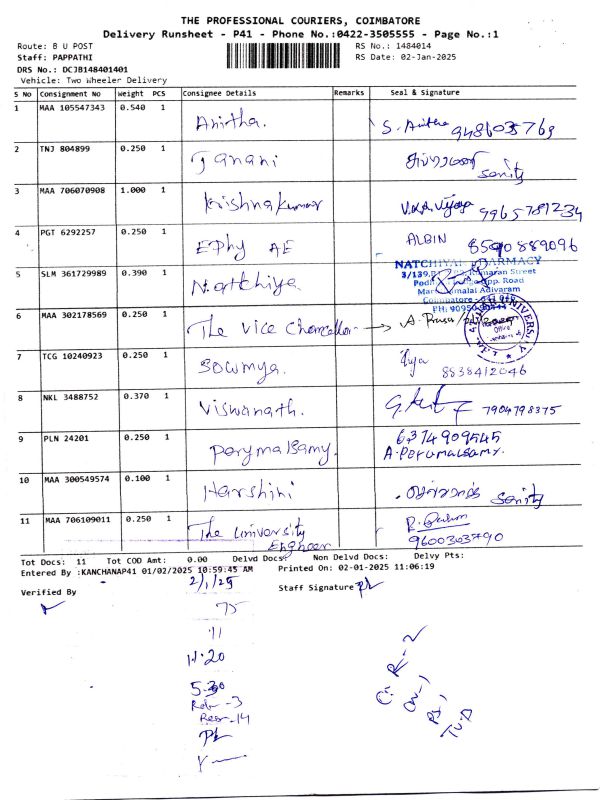 THE PROFESSIONAL COURIERS, COIMBATORE
Delivery Runsheet - P41 - Phone No.:0422-3505555 - Page No.:1
Route: B U POST RS No.: 1484014
Staff: PAPPATHI RS Date: 02-Jan-2025
DRS No.: DCJB148401401
Vehicle: Two Wheeler Delivery
S No Consignment No Weight PCS Consignee Details Remarks Seal & Signature
1 MAA 105547343 0.540 1 Anitha. S. Anitha
2 TNJ 804899 0.250 1 Janani
3 MAA 706070908 1.000 1 Krishnakumar 9965781234
4 PGT 6292257 0.250 1 EPhy AE ALBIN 8590889096
NATCHIYAR PHARMACY
5 SLM 361729989 0.390 1 Natchiya
6 MAA 302178569 0.250 1 The Vice Chancellor
7 TCG 10240923 0.250 1 Sowmya. 8838412046
8 NKL 3488752 0.370 1 Viswanath. 7904798375
9 PLN 24201 0.250 1 Perymalsamy. 6374909545
A.Perumalsamy.
10 MAA 300549574 0.100 1 Harshini
11 MAA 706109011 0.250 1 The University
Engineer 9600303790
Tot Docs: 11 Tot COD Amt: 0.00 Delvd Docs: Non Delvd Docs: Delvy Pts:
Entered By :KANCHANAP41 01/02/2025 10:59:45 AM Printed On: 02-01-2025 11:06:19
Verified By 2/1/25 Staff Signature
75
11
11.20
5.30